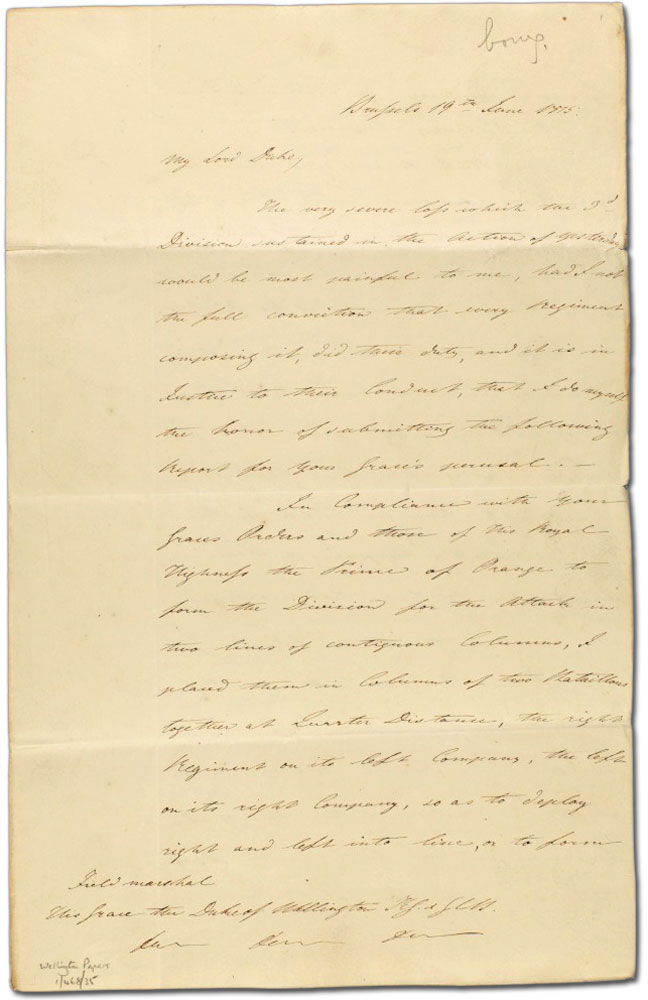 Brussels 19th June 1815.
My Lord Duke,
The very severe loss which the 3d
Division sustained in the Action of yesterday
would be most painful to me, had I not
the full conviction that every Regiment
composing it, did their duty, and it is in
Justice to their Conduct, that I do myself
the honor of submitting the following
Report for Your Grace's perusal. —
In Compliance with Your
Graces Orders and those of His Royal
Highness the Prince of Orange to
form the Division for the Attack in
two lines of contiguous Columns, I
placed them in Columns of two Battallions
together at Quarter Distance, the right
Regiment on its left Company, the left
on its right Company, so as to deploy
right and left into line, or to form
Field marshal
His Grace the Duke of Wellington KG & GCB.
Wellington Papers
1/468/35